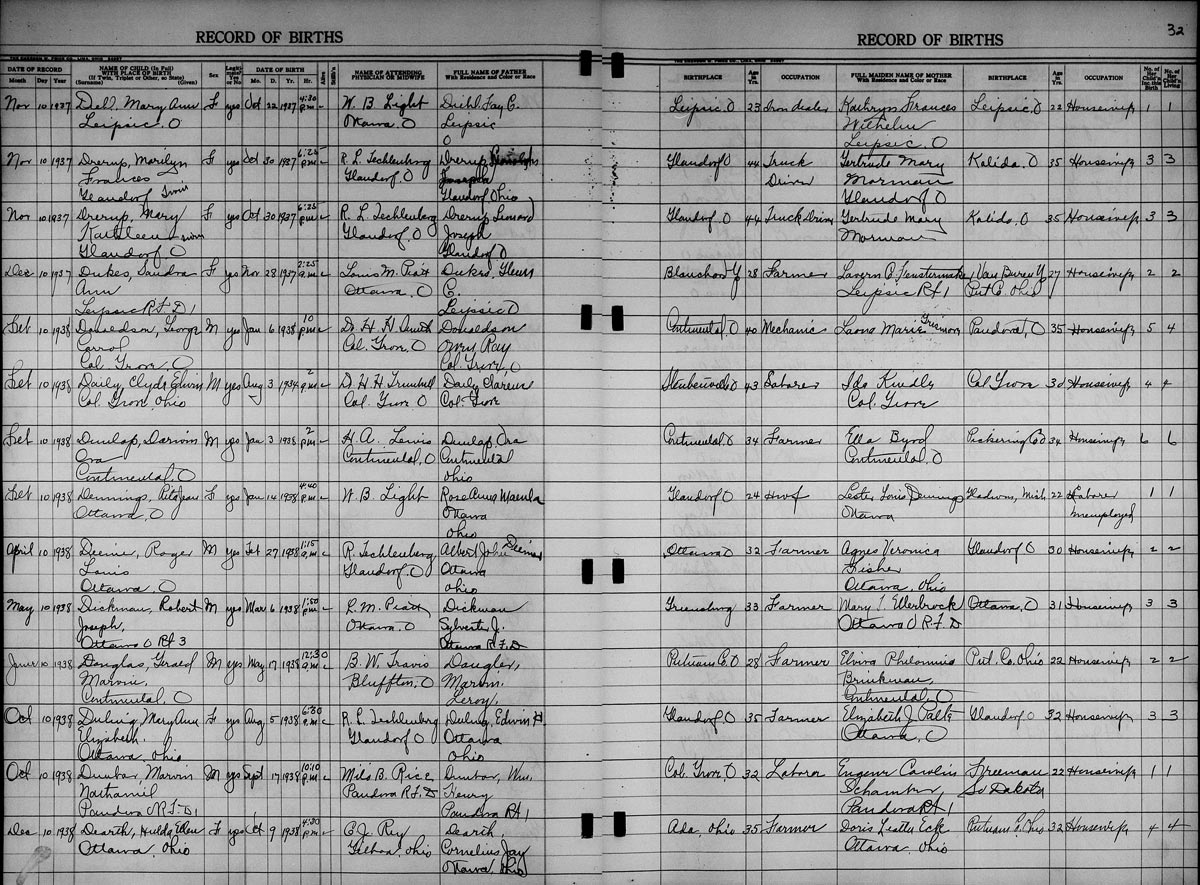 32
RECORD OF BIRTHS
RECORD OF BIRTHS
DATE OF RECORD Month Day Year
NAME OF CHILD (In Full) WITH PLACE OF BIRTH (If Twin, Triplet or Other, so State) (Surname) (Given)
Sex
DATE OF BIRTH Month D. Yr. Hr.
NAME OF ATTENDING PHYSICIAN OR MIDWIFE
FULL NAME OF FATHER With Residence and Color or Race
BIRTHPLACE
Age in Yrs.
OCCUPATION
FULL MAIDEN NAME OF MOTHER With Residence and Color or Race
BIRTHPLACE
Age in Yrs.
OCCUPATION
No. of Her Child'n Inc. this Birth
No. of Her Child'n Living
Nov 10 1937 Mary Ann F yes Oct 22 1937 4:30 W. B. Light Diehl Fay C. Leipsic. O 23 Kathryn Frances Leipsic. O 22 Housewife 1 1
Leipsic. O Ottawa. O Leipsic
O Leipsic. O
Nov 10 1937 Drerup, Marilyn F yes Oct 30 1937 p.m. R. L. Techlenburg Drerup Glandorf O 44 Truck Gertrude Mary Kalida. O 35 Housewife 3 3
Frances Glandorf O Driver Morman
Glandorf Twin Glandorf Ohio Glandorf O
Nov 10 1937 Drerup, Mary F yes Oct 30 1937 p.m. R. L. Techlenburg Drerup Leonard Glandorf. O 44 Truck Driver Gertrude Mary Kalida. O 35 Housewife 3 3
Kathleen Twin Glandorf. O Joseph Morman
Glandorf O Glandorf O
Dec 10 1937 Dukes, Sandra F yes Nov 28 1937 2:25 a.m. Louis M. Piatt Dukes, Glenn Blanchard 28 Farmer Lavern Fenstermaker Van Buren 27 Housewife 2 2
Ann Ottawa. O C. Leipsic Rt 1 Put Co. Ohio
Leipsic RFD 1 Leipsic O
Feb 10 1938 Donaldson, George M yes Jan 6 1938 10 p.m. Donaldson Continental. O 40 Mechanic Marie Pandora. O 35 Housewife 5 4
Carrol Col. Grove, O Ray
Col Grove, O Col. Grove, O
Feb 10 1938 Daily, Clyde Edwin M yes 3 2 p.m. D. H. H. Trumbull Daily Clarence Steubenville O 43 Laborer Ida Col Grove 30 Housewife 4 4
Col. Grove, Ohio Col. Grove O Col. Grove Col. Grove
Feb 10 1938 Dunlap, M yes Jan 3 1938 2 p.m. H. A. Lewis Dunlap Ora Continental, O 34 Farmer Ella Byrd Pickering Co 34 Housewife 6 6
Ora Continental, O Continental Continental, O
Continental, O Ohio
Feb 10 1938 Dennings, Rita Jean F yes Jan 14 1938 4:40 W. B. Light Rose Anna Glandorf O 24 Hwf Lester Louis Dennings Mich 22 Laborer 1 1
Ottawa, O Ottawa Ottawa unemployed
Ohio
April 10 1938 Roger M yes Feb 27 1938 1:15 a.m. R. Techlenburg Albert John Ottawa O 32 Farmer Agnes Veronica Glandorf O 30 Housewife 2 2
Louis Glandorf. O Ottawa Fisher
Ottawa. O Ohio Ottawa, Ohio
May 10 1938 Dickman, Robert M yes Mar 6 1938 1:50 p.m. L. M. Piatt Dickman Greensburg 33 Farmer Mary Ellerbrock Ottawa, O 31 Housewife 3 3
Joseph, Ottawa. O Sylvester J. Ottawa O R.F.D
Ottawa O Rt 3 Ottawa R.F.D
June 10 1938 Douglas, Gerald M yes May 17 1938 12:30 a.m. B. W. Travis Putnam Co. O 28 Farmer Put. Co. Ohio 22 Housewife 2 2
Marvin, Bluffton, O Marvin Brinkman,
Continental, O Leroy, Continental, O
Oct 10 1938 Duling, Mary Ann F yes Aug, 5 1938 6:30 R. L. Techlenburg Duling, Edwin H. Glandorf. O 35 Farmer Elizabeth J. Glandorf. O 32 Housewife 3 3
Elizabeth. Glandorf O Ottawa Ottawa, O
Ottawa, Ohio Ohio
Oct 10 1938 Dunbar Marvin M yes Sept 17 1938 10:10 p.m. Milo B. Rice Dunbar, Wm, Col. Grove, O 32 Laborer Freeman 22 Housewife 1 1
Nathaniel Pandora R.F.D Henry So Dakota
Pandora R.F.D 1 Pandora Rt 1 Pandora Rt 1
Dec 10 1938 Dearth, Hulda Ellen F yes Oct 9 1938 4:30 p.m. C. J. Ray Dearth, Ada, Ohio 35 Farmer Doris Putnam Co. Ohio 32 Housewife 4 4
Ottawa, Ohio Gilboa, Ohio Cornelius Jay Ottawa, Ohio
Ottawa, Ohio